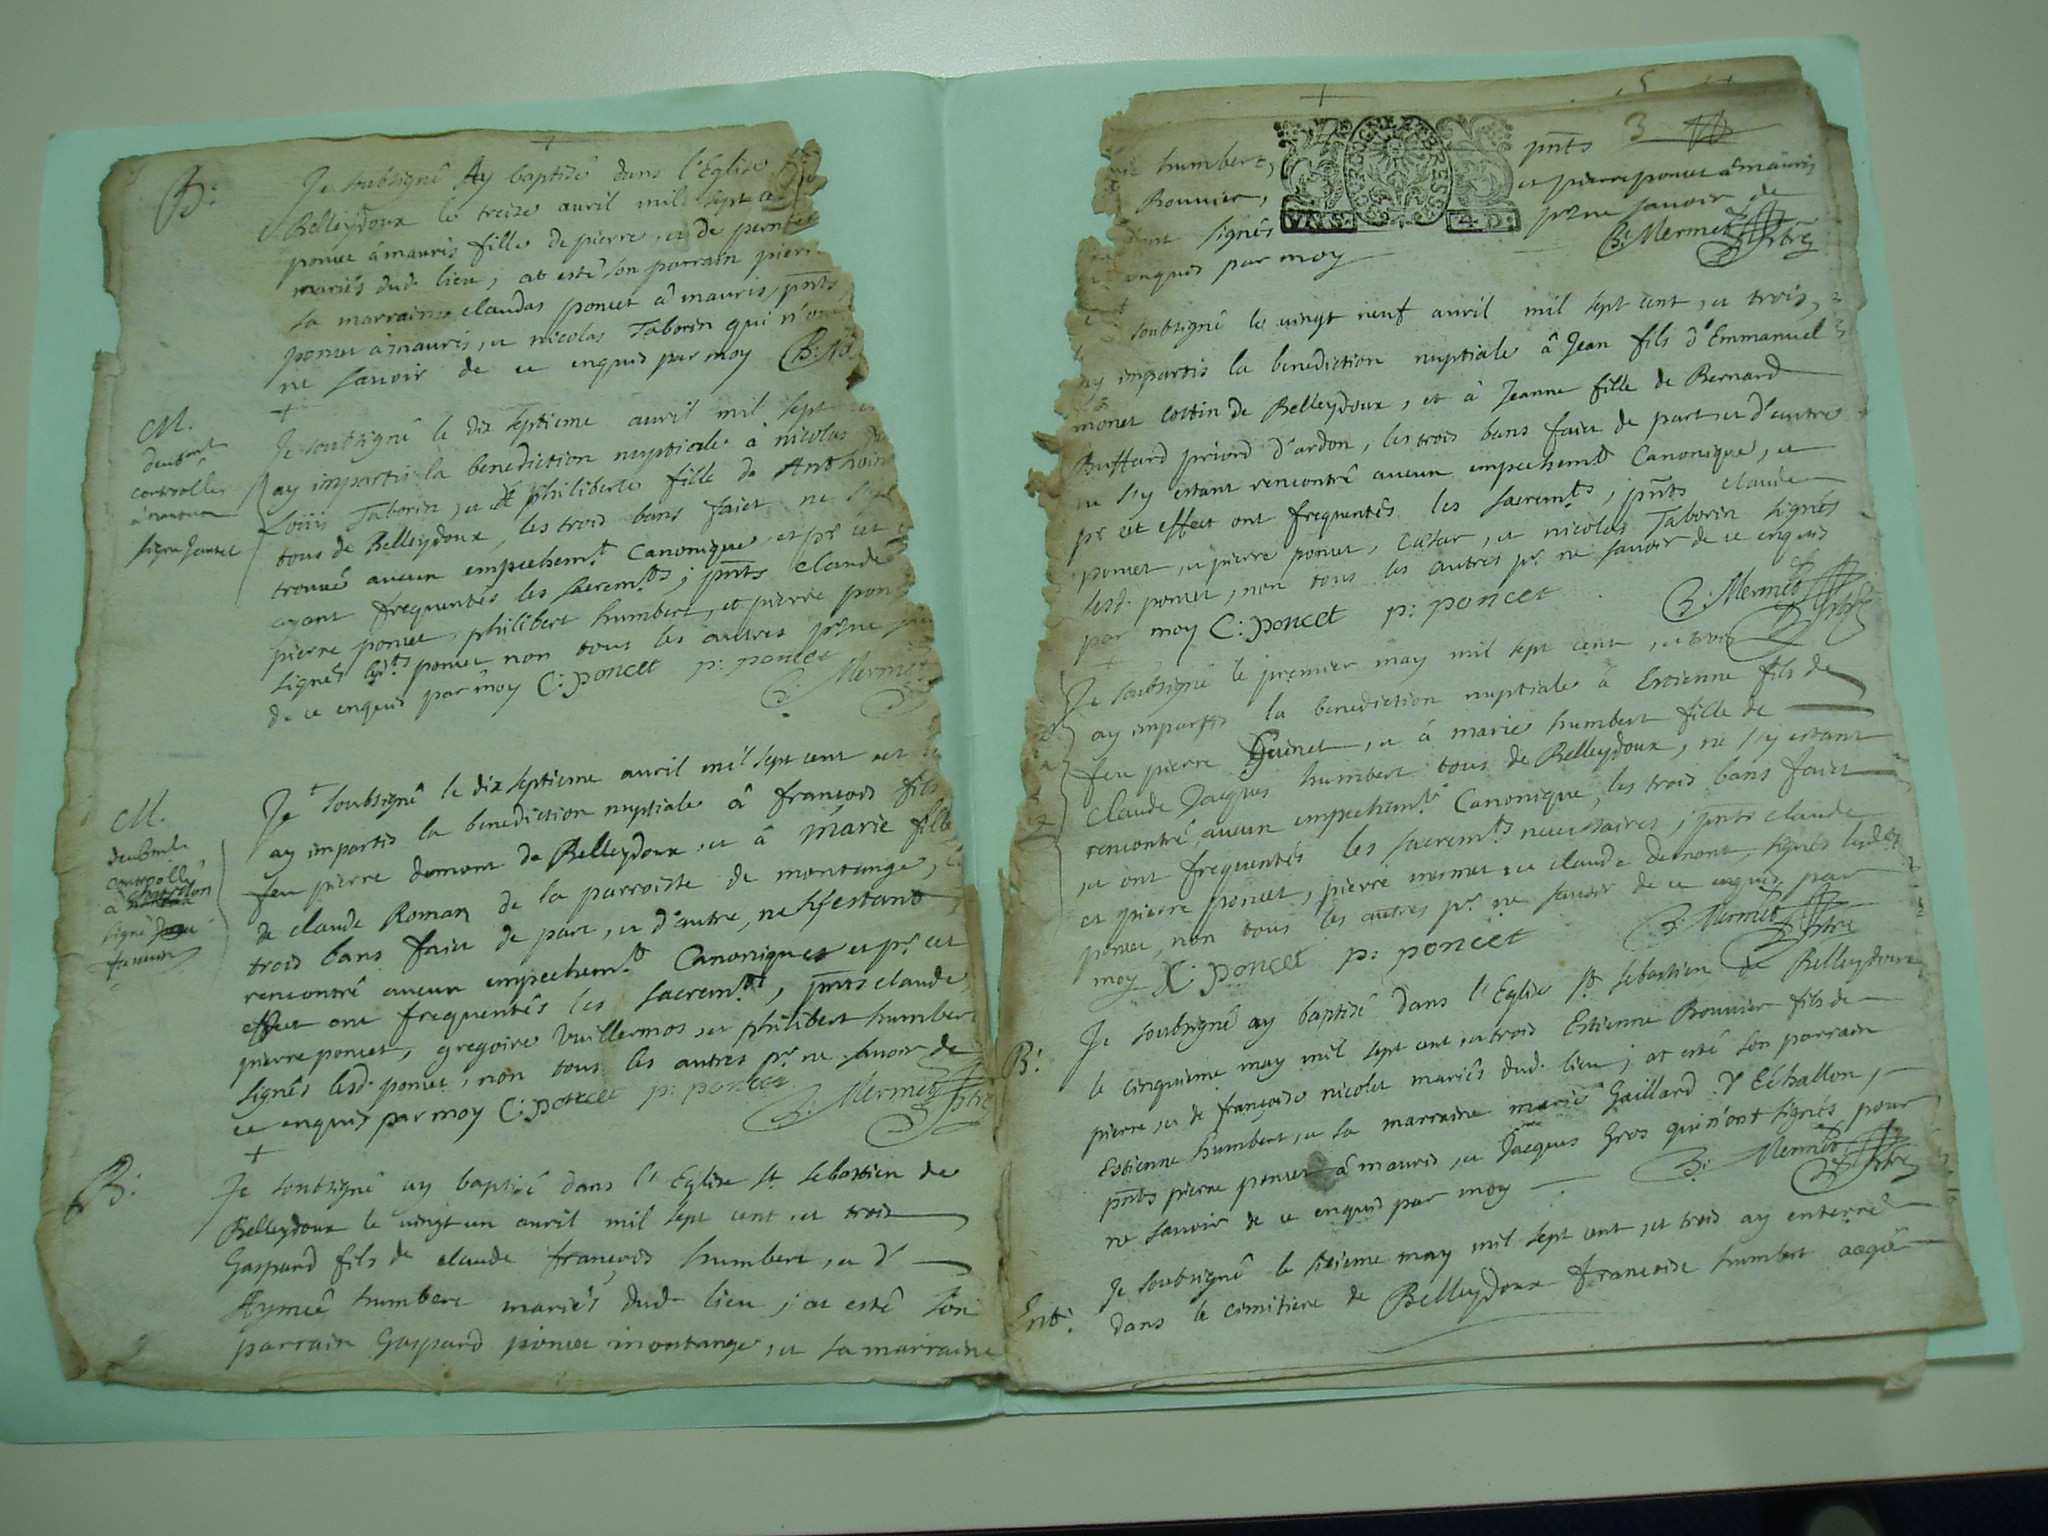 B:
Je soubsigné Ay baptisé dans l'Eglise
Belleydoux le treize avril mil sept ce
poncet â mauris fille de pierre, et de pern
mariés dud. lieu, at esté son parrain pierr
sa marraine claudas poncet â mauris, pnts
poncet a mauris, et nicolas Taborin qui n'on
ne savoir de ce enquis par moy B: M
M.
controlle
Je soubsigné le dix septieme avril mil sept
ay impartis la benediction nuptiale à nicolas
Louis Taborin, et philiberte fille de Anthoin
tous de Belleydoux, les trois bans faict ne s'y
trouvé aucun empechemt Canonique et pr cet
ayant frequentés les sacremts; pnts claude
pierre poncet, philibert humbert, et pierre pon
signés lesdts poncet non tous les autres pr ne
de ce enquis par moy C: poncet p: poncet
B: Mermet
M.
controllé
a Chatillon
signé
Je soubsigné le dix septieme avril mil sept cent et
ay impartis la benediction nuptiale â françois fils
feu pierre demont de Belleydoux et â Marie fille
de claude Roman de la parroisse de montange,
trois bans faict de part, et d'autre, ne s'y estant
rencontré aucun empechemt Canonique et pr cet
effect ont frequentés les sacremts, pnts claude
pierre poncet, gregoire Vuillermos et philibert humbert
signés lesd. poncet, non tous les autres pr ne savoir de
ce enquis par moy C: poncet p: poncet B: Mermet ptre
B:
Je soubsigné ay baptisé dans l'Eglise St sebastien de
Belleydoux le vingt un avril mil sept cent et trois
Gaspard fils de claude françois humbert, et d'
Aymeé humbert mariés dud. lieu; at esté son
parrain Gaspard poncet montange, et sa marraine
humbert,
Bouvier,
signés
enquis par moy
VN S. 4 D.
3
pnts
et pierre poncet â mauris
pr ne savoir de
B: Mermet ptre
soubsigné le vingt neuf avril mil sept cent, et trois,
ay impartis la benediction nuptiale â Jean fils d'Emmanuel
monet cottin de Belleydoux, et à Jeanne fille de Bernard
Buffard priord d'ardon, les trois bans faict de part et d'autre
ne s'y estant rencontré aucun empechemt Canonique, et
pr cet effect ont frequentés les sacremts; pnts claude
poncet, et pierre poncet, César, et nicolas Taborin signés
lesd. poncet, non tous les autres pr ne savoir de ce enquis
par moy C: poncet p: poncet B: Mermet ptre
Je soubsigné le premier may mil sept cent, et trois
ay impartis la benediction nuptiale à Estienne fils de
feu pierre Guinet, et à marie humbert fille de
claude Jacques humbert tous de Belleydoux, ne s'y estant
rencontré aucun empechemt Canonique, les trois bans faict
et ont frequentés les sacremts necessaires; pnts claude
et pierre poncet, pierre mermet et claude demont, signés lesdts
poncet, non tous les autres pr ne savoir de ce enquis par
moy C: poncet p: poncet B: Mermet ptre
B:
Je soubsigné ay baptisé dans l'Eglise St sebastien de Belleydoux
le cinquieme may mil sept cent et trois Estienne Bouvier fils de
pierre et de françoise nicolet mariés dud. lieu; at esté son parrain
Estienne humbert, et sa marraine marie Gaillard d'Echallon,
pnts pierre poncet â mauris, et Jacques Gros qui n'ont signés pour
ne savoir de ce enquis par moy B: Mermet ptre
Ent:
Je soubsigné le sixieme may mil sept cent, et trois ay enterré
dans le cimitiere de Belleydoux francoise humbert aagée